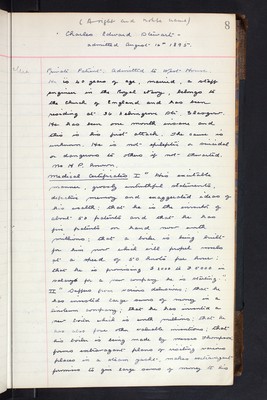 8
(Airright and noble news)
Charles Edward Stewart -
admitted August 12th 1895.
Private Patient. Admitted to West House.
He is 40 years of age, married, a staff
engineer in the Royal Navy, belongs to
the Church of England and has been
residing at 30 Glasgow.
He has been one month insane and
this is his first attack. The cause is
unknown. He is not epileptic or suicidal
or dangerous to others if not thwarted.
No H. P. known.
Medical Certificates I "His excitable
manner, grossly untruthful statements,
defective memory and exaggerated ideas of
his wealth; that he is the inventor of
about 50 patents and that he has
five patents on hand now worth
millions; that a boiler is being built
for him now which will propel vessels
at a speed of 50 knots per hour;
that he is promising £1000 to £5000 in
salary for a new company he is starting."
II "Suffers from various delusions; that he
has invested large sums of money in a
company; that he has invented a
new boiler which is worth millions; that he
has also five other valuable inventions; that
his boiler is being made by Messrs Thompson,
forms extravagant plans of erecting various
places in a yard, makes extravagant
promises to give large sums of money to his